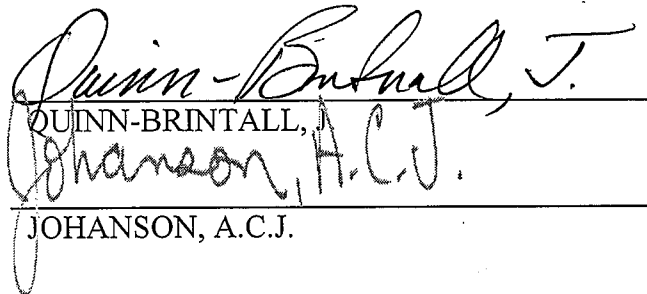 Quinn-Brintnall, J.
QUINN-BRINTALL, J
Johanson, A.C.J.
JOHANSON, A.C.J.